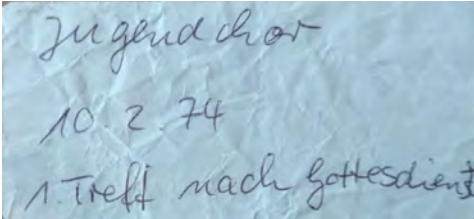 Jugendchor
10.2.74
1. Treff nach Gottesdienst